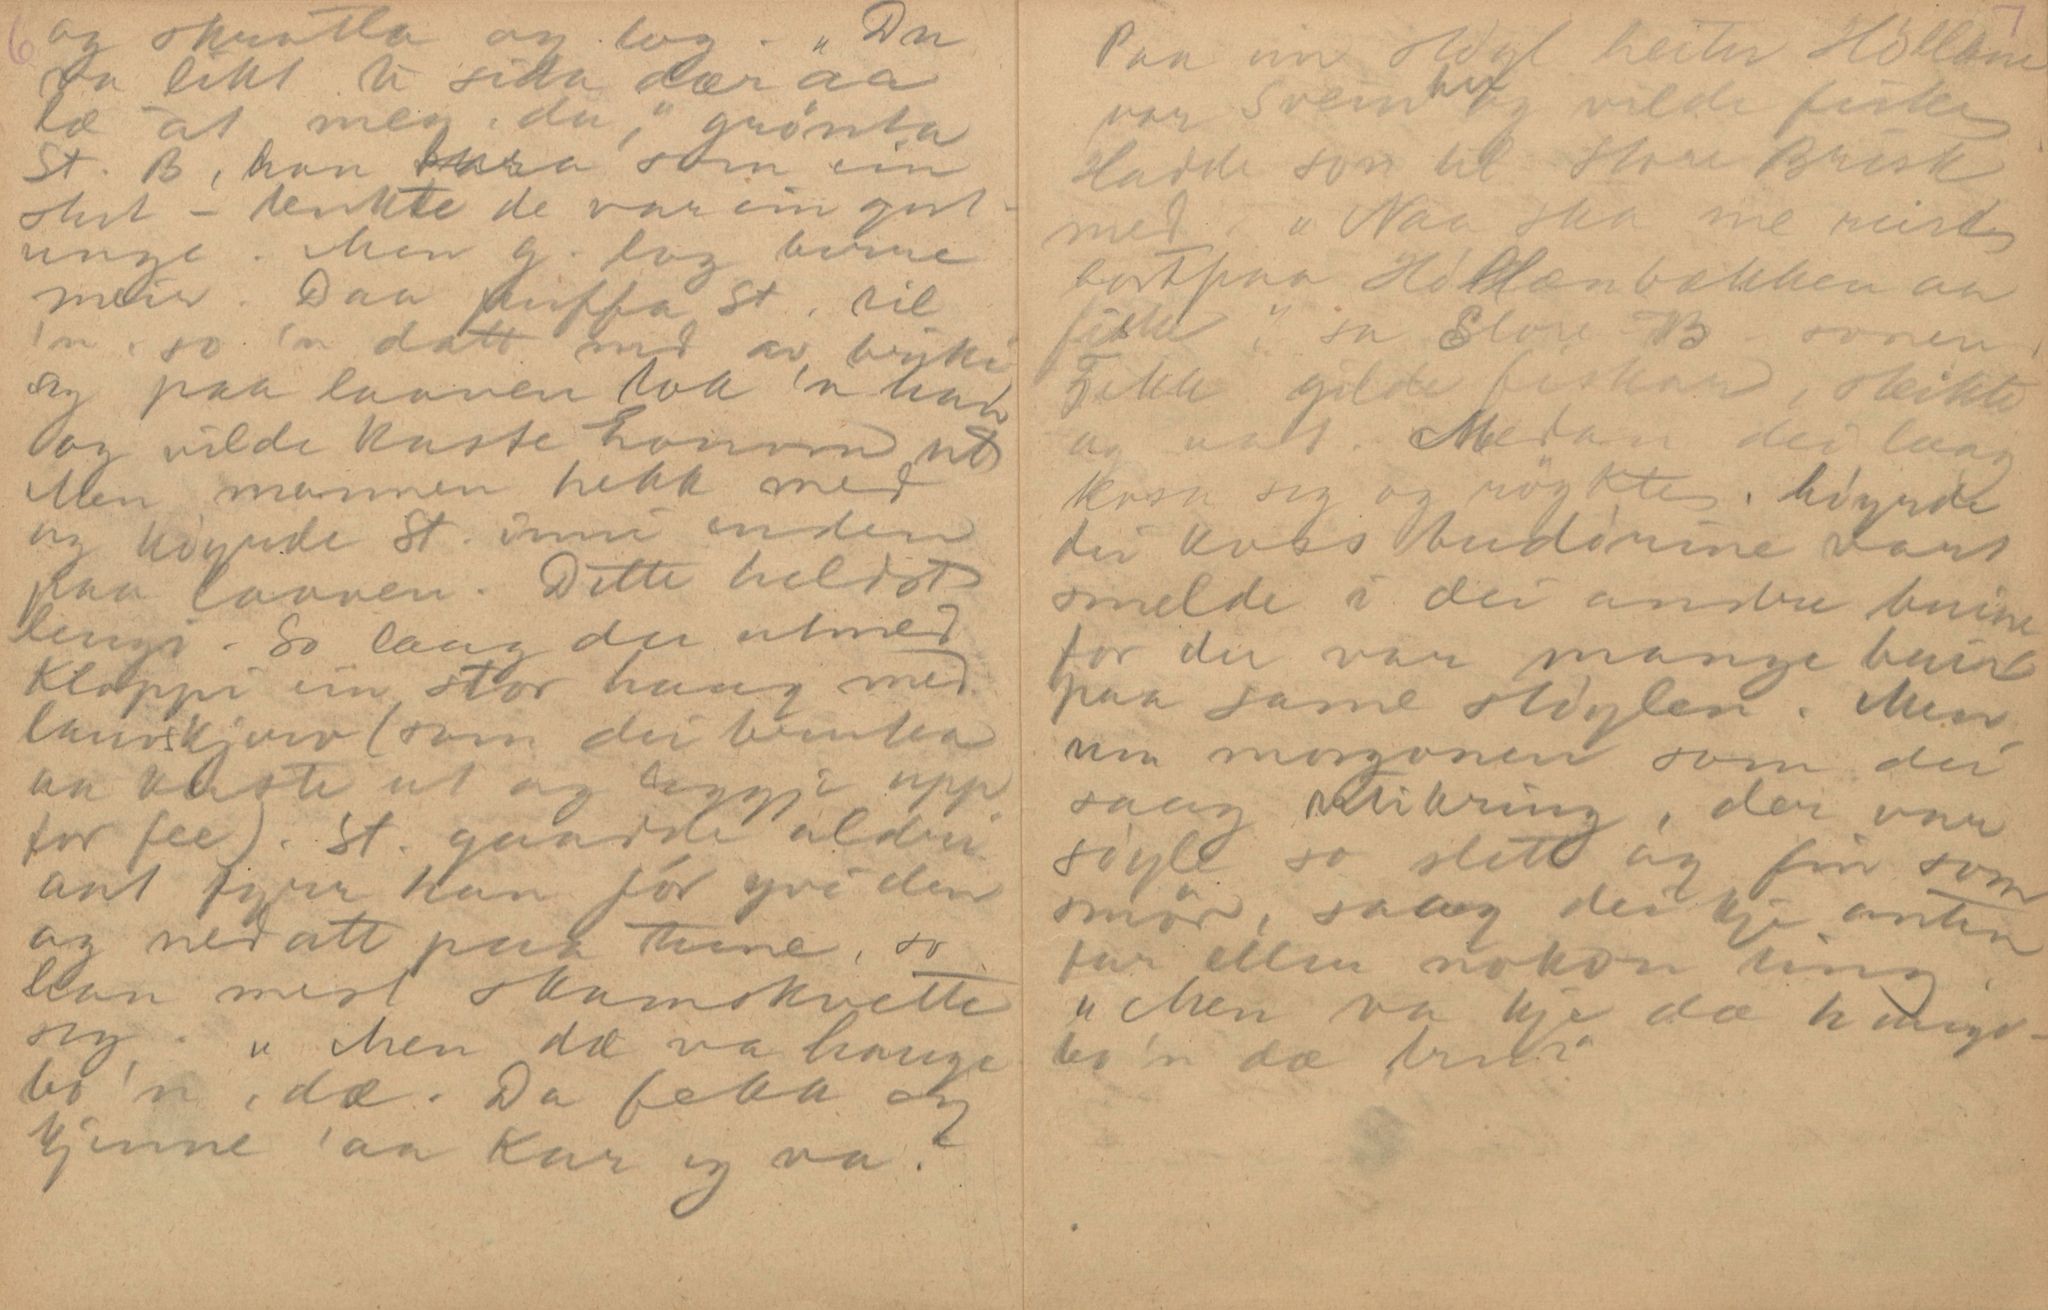 6
og skratla og log. "Du
va likt te sida dær aa
læ at meg, du," grönta
St. B, han som ein
stut – tenkte de var ein gut-
unge. Men g. log berre
meir. Daa puffa St. til
'n, so 'n datt ned av briki
og paa laaven tok 'n han
og vilde kaste honom ut
Men mannen hekk med
og köyrde St. inni enden
paa laaven. Dette heldt
lengi. So laag der utmed
Kloppi ein stor haug med
lauvskjerv (som dei bruka
aa kaste ut og leggje upp
for fee). St. gaadde aldri
ant fyrr han fór yvi den
og nedatt paa tune, so
han mest skamskvette
seg. "Men dæ va hauge
bo'n, dæ. Da fekk eg
kjenne 'aa Kar eg va."
7
Paa ein stöyl heiter Höllene
var Svein her og vilde fiske
Hadde son til Store Brisk
med. "Naa ska me reise
bortpaa Höllenbækken aa
fiske", sa Store B. sonen.
Fekk gilde fiskar, steikte
og aat. Medan dei laag
kosa seg og röykte, höyrde
dei koss budörine vart
smelde i dei andre buine
for der var mange buir
paa same stöylen. Men
um morgonen som dei
saag ikring, der var
söyle so slett og fin som
smör, saag dei kje anten
far eller nokon ting.
"Men va kje dæ hauge-
bo'n dæ